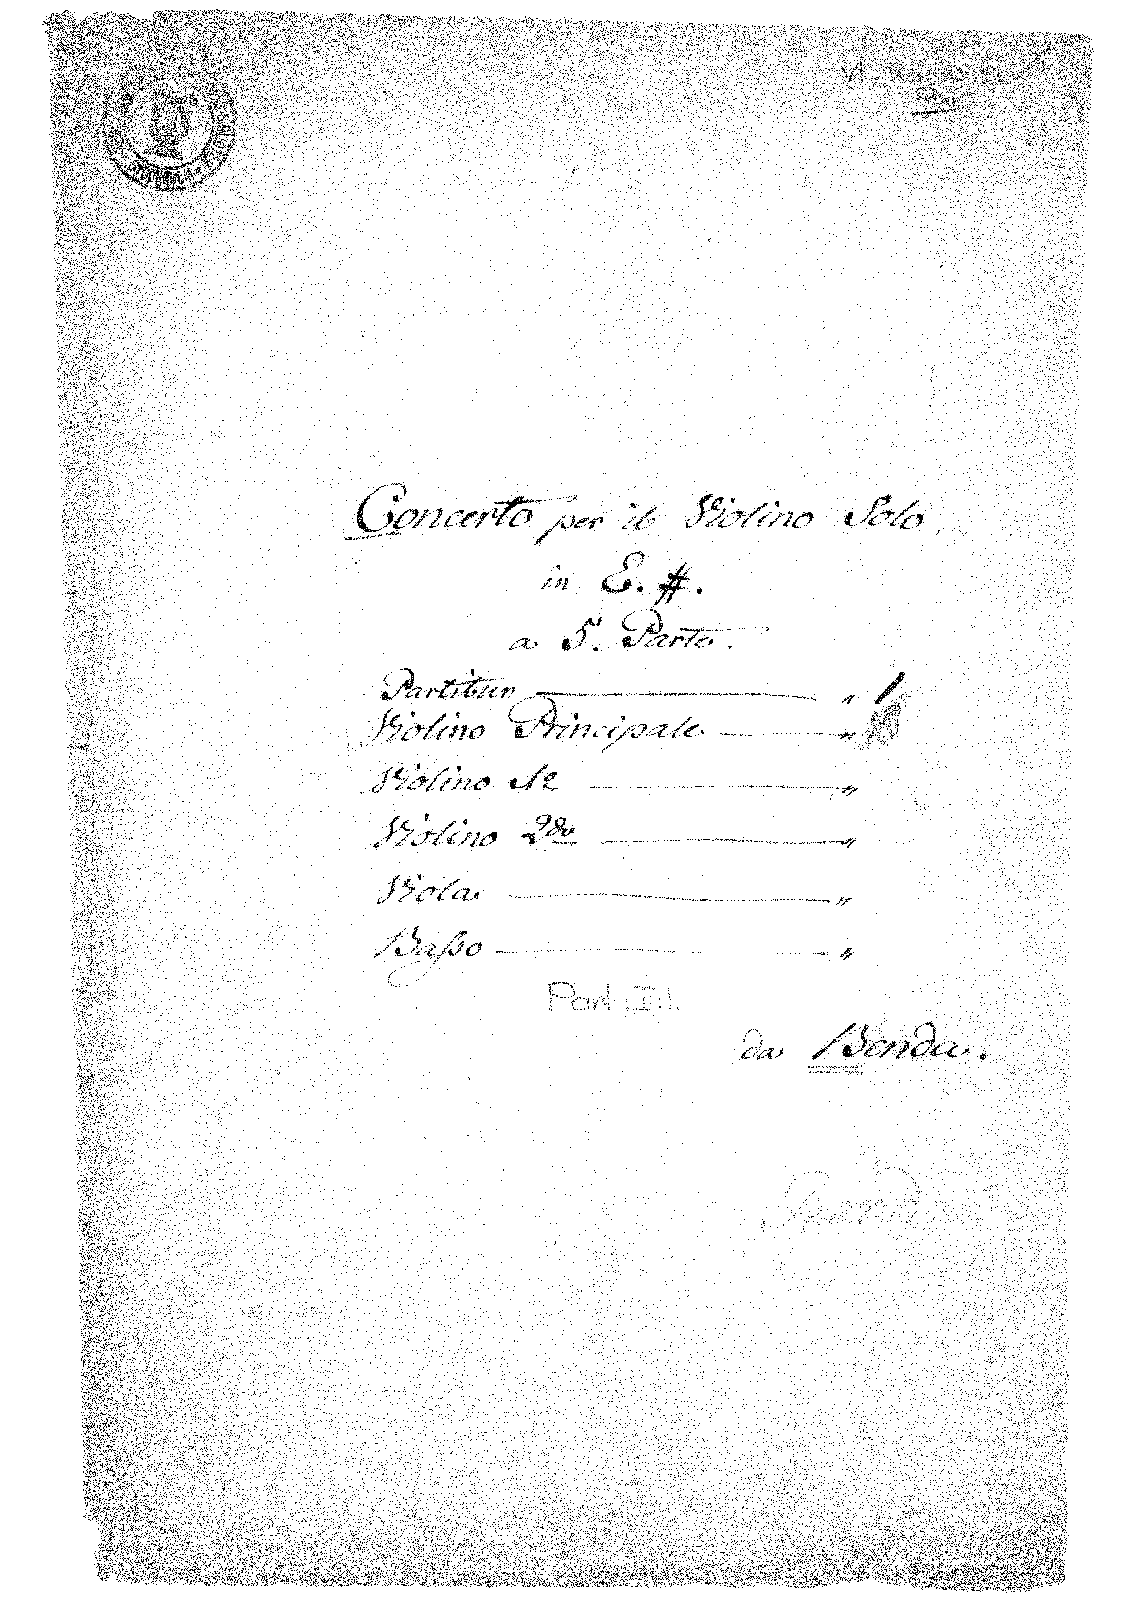 Concerto per il Violino Solo
in E. #.
a 5. Parte.
Partitur — " 1
Violino Principale — "
Violino 1o — "
Violino 2do — "
Viola — "
Basso — "
Part.
da Benda.